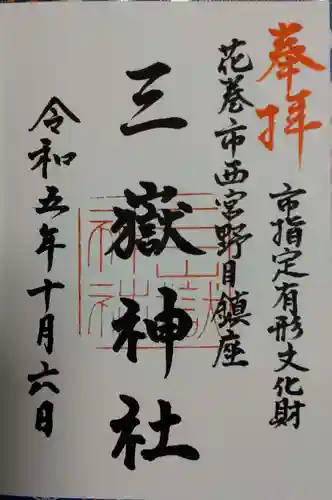 奉拝
市指定有形文化財
花巻市西宮野目鎮座
三嶽神社
三嶽神社
令和五年十月六日